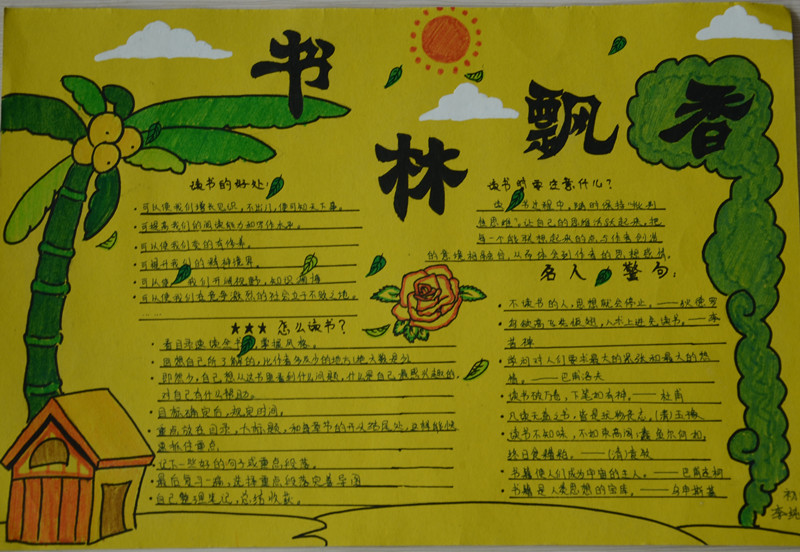 书林飘香
读书的好处:
可以使我们增长见识,不出门,便可知天下事。
可提高我们的阅读能力和写作水平。
可以使我们变的有修养。
可提升我们的精神境界。
可以使我们开阔视野,知识渊博
可以使我们在竞争激烈的社会立于不败之地。
★★★ 怎么读书?
看目录
既然自己所了解的,比作者多
即然少,自己想从这书里看到什么问题,什么是自己最感兴趣的,
对自己有什么帮助。
目标确定后,规定时间。
重点放在目录,大标题,和每章节的开头结尾处,这样能快
记下一些好的句子或重点段落。
最后复习一遍,选择重点段落
自己整理笔记,总结收获。
读书时要注意什么?
过程中,随时保持“批判
性思维”,让自己的思维活跃起来,把
每一个能联想起来的点与作者创造
的意境相融合,从而体会到作者的思想感情。
名人警句:
不读书的人,思想就会停止。——狄德罗
鸟欲高飞先振翅,人求上进先读书。——李
苦禅
学问对人们要求最大的紧张和最大的热
情。——巴甫洛夫
读书破万卷,下笔如有神。——杜甫
凡读无益之书,皆是玩物丧志。
读书不知味,不如束高阁;蠹鱼尔何如,
终日食糟粕。——(清)袁枚
书籍使人们成为宇宙的主人。——巴甫连柯
书籍是人类思想的宝库。——乌申斯基